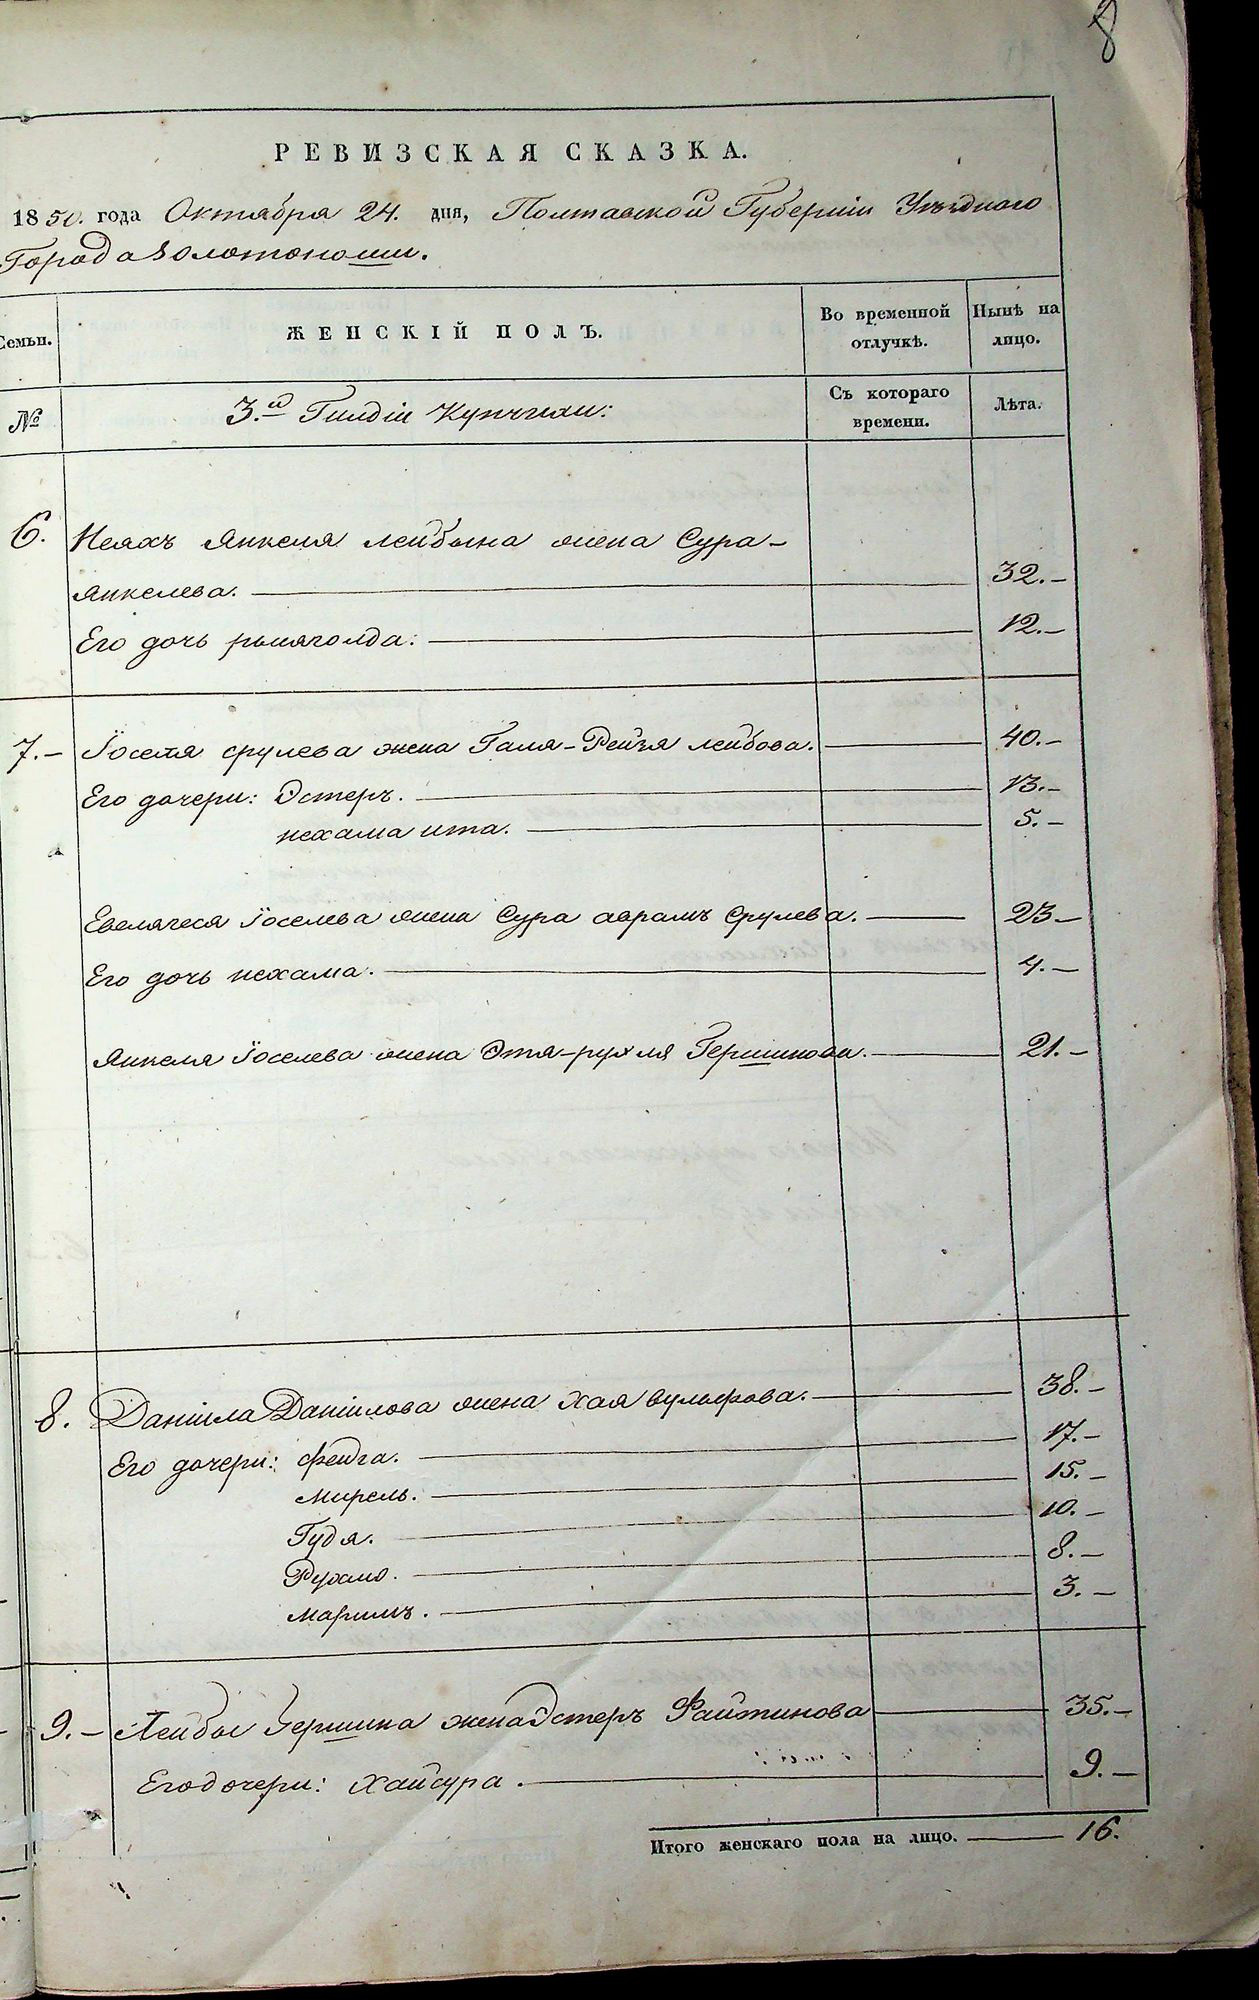 8
РЕВИЗСКАЯ СКАЗКА.
1850. года Октября 24. дня, Полтавской Губерніи Уѣзднаго
Города Золотоноши.
Семьи.
ЖЕНСКІЙ ПОЛЪ.
Во временной отлучкѣ.
Нынѣ на лицо.
№
3.й Гилдіи Купчихи:
Съ котораго времени.
Лѣта.
6. Янкеля жена Сура-
Янкелева. 32.-
Его дочь 12.-
7.- Іоселя срулева жена Галя-Рейзя лейбова. 40.-
Его дочери: Эстеръ. 13.-
нехама ита. 5.-
Іоселева жена Сура аврамъ Срулева. 23-
Его дочь нехама. 4.-
Янкеля Іоселева жена Этя-рухля 21.-
8. Даніила Даніилова жена хая вульфова. 38.-
Его дочери: фейга. 17.-
мирель. 15.-
Гудя. 10.-
8.-
маримъ. 3.-
9.- Лейбы Гершина жена Эстеръ 35.-
Его дочери: хайсура. 9.-
Итого женскаго пола на лицо. 16.